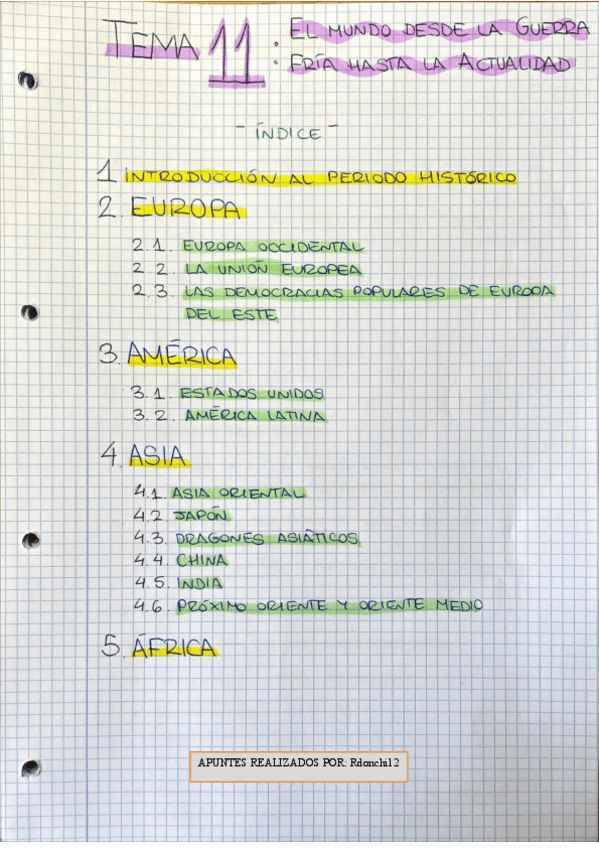 TEMA 11: EL MUNDO DESDE LA GUERRA
FRÍA HASTA LA ACTUALIDAD
- ÍNDICE -
1 INTRODUCCIÓN AL PERIODO HISTÓRICO
2. EUROPA
2.1. EUROPA OCCIDENTAL
2.2. LA UNIÓN EUROPEA
2.3. LAS DEMOCRACIAS POPULARES DE EUROPA
DEL ESTE
3. AMÉRICA
3.1. ESTADOS UNIDOS
3.2. AMÉRICA LATINA
4. ASIA
4.1. ASIA ORIENTAL
4.2 JAPÓN
4.3. DRAGONES ASIÁTICOS
4.4. CHINA
4.5. INDIA
4.6. PRÓXIMO ORIENTE Y ORIENTE MEDIO
5. ÁFRICA
APUNTES REALIZADOS POR: Rdonchi12